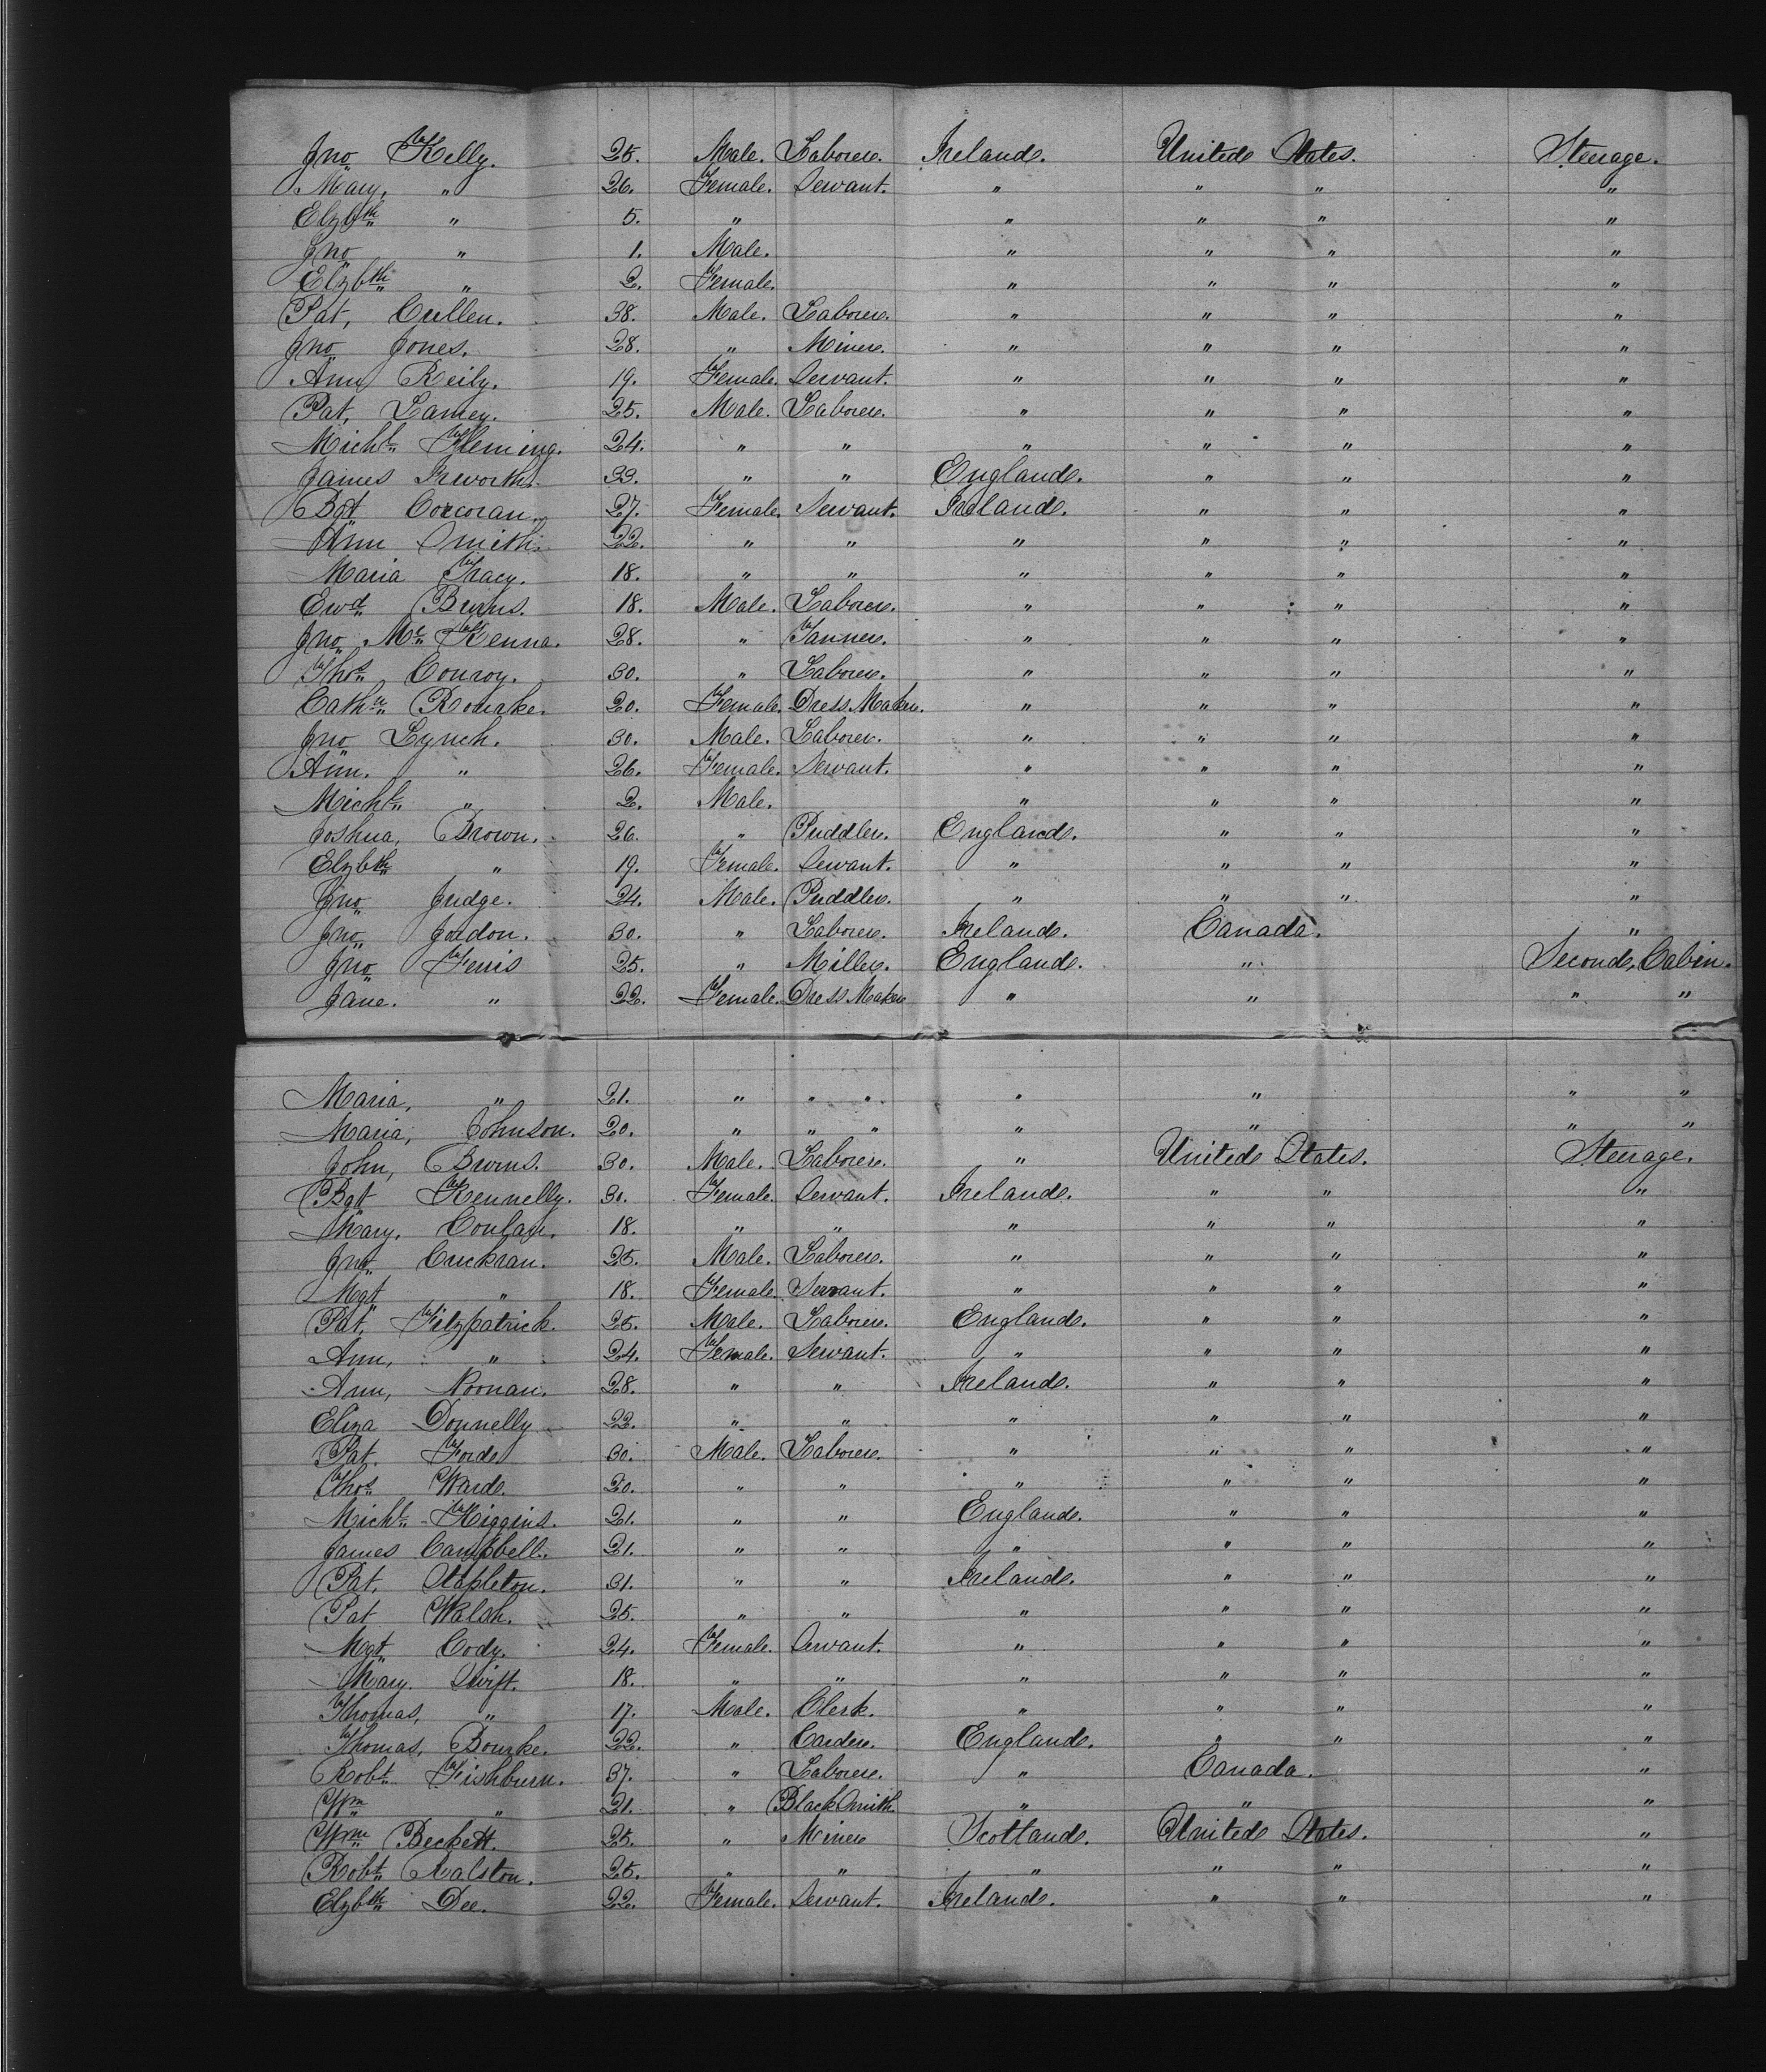 Jno Kelly. 25. Male. Laborer. Ireland. United States. Steerage.
Mary, " 26. Female. Servant. " " " "
Elzbth " 5. " " " " "
Jno " 1. Male. " " " "
Elzbth " 2. Female. " " " "
Pat, Cullen. 38. Male. Laborer. " " " "
Jno Jones. 28. " Miner. " " " "
Ann Reily. 19. Female. Servant. " " " "
Pat, Lamey. 25. Male. Laborer. " " " "
Michl Fleming. 24. " " " " " "
James 33. " " England. " " "
Bgt Corcoran. 27. Female. Servant. Ireland. " " "
Ann Smith. 22. " " " " " "
Maria Tracy. 18. " " " " " "
Ewd Burns. 18. Male. Laborer. " " " "
Jno McKenna. 28. " Tanner. " " " "
Thos Conroy. 30. " Laborer. " " " "
Cathe Rourke. 20. Female. Dress Maker. " " " "
Jno Lynch. 30. Male. Laborer. " " " "
Ann. " 26. Female. Servant. " " " "
Michl " 2. Male. " " " "
Joshua, Brown. 26. " Puddler. England. " " "
Elzbth " 19. Female. Servant. " " " "
Jno Judge. 24. Male. Puddler. " " " "
Jno Jordon. 30. " Laborer. Ireland. Canada. "
Jno Ferris 25. " Miller. England. " Second, Cabin.
Jane. " 22. Female. Dress Maker " " " "
Maria, " 21. " " " " " " "
Maria, Johnson. 20. " " " " " " "
John, Burns. 30. Male. Laborer. " United States. Steerage.
Bgt Kennelly. 30. Female. Servant. Ireland. " " "
Mary. Conlan. 18. " " " " " "
Jno Cuckran. 25. Male. Laborer. " " " "
Mgt " 18. Female. Servant. " " " "
Pat, Fitzpatrick. 25. Male. Laborer. England. " " "
Ann, " 24. Female. Servant. " " " "
Ann, Noonan. 28. " " Ireland. " " "
Eliza Donnelly 22. " " " " " "
Pat. Ford. 30. Male. Laborer. " " " "
Thos Ward. 20. " " " " " "
Michl Higgins. 21. " " England. " " "
James Campbell. 21. " " " " " "
Pat, Stapleton. 31. " " Ireland. " " "
Pat Walsh. 25. " " " " " "
Mgt Cody. 24. Female. Servant. " " " "
Mary. Swift. 18. " " " " " "
Thomas, " 17. Male. Clerk. " " " "
Thomas, Bourke. 22. " Carder. England. " " "
Robt Fishburn. 37. " Laborer. " Canada. "
Wm " 21. " Black Smith. " " "
Wm Beckett. 25. " Miner Scotland. United States. "
Robt Ralston. 25. " " " " " "
Elzbth Dee. 22. Female. Servant. Ireland. " " "